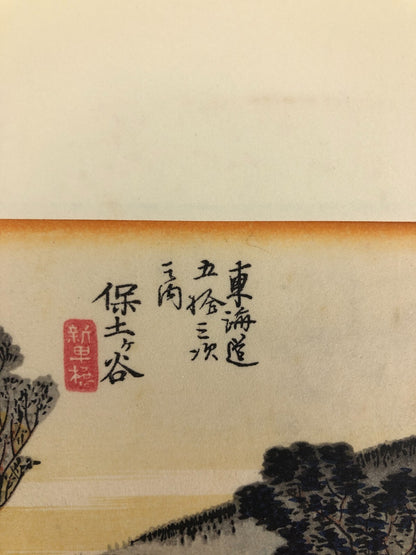 東海道
五拾三次
之内
保土ケ谷
新甼橋